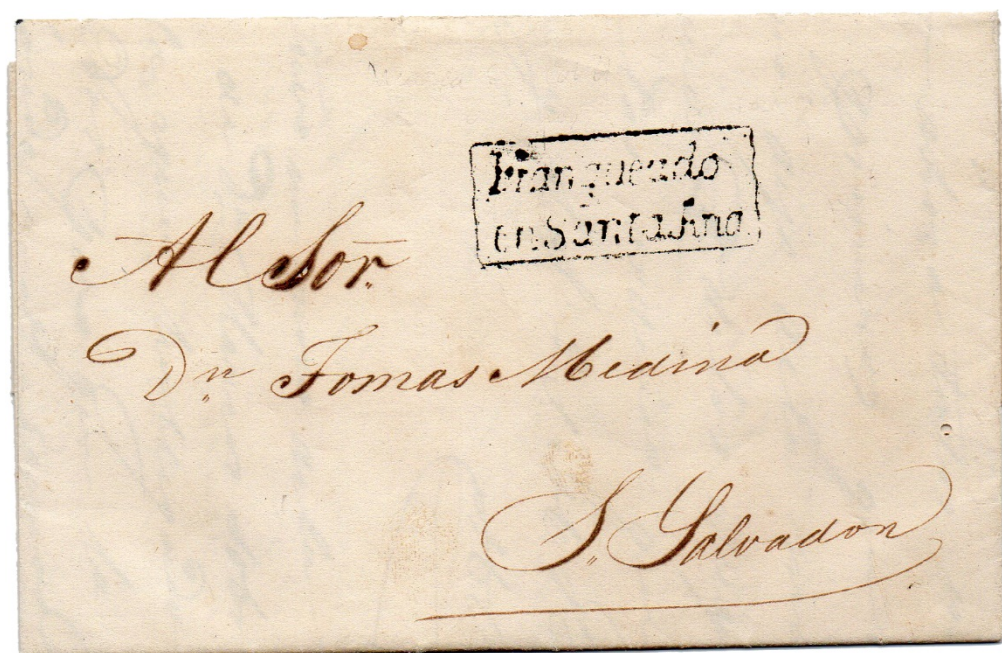 Franqueado
en Santa Ana
Al Sor.
Dn Tomas Medina
S. Salvador